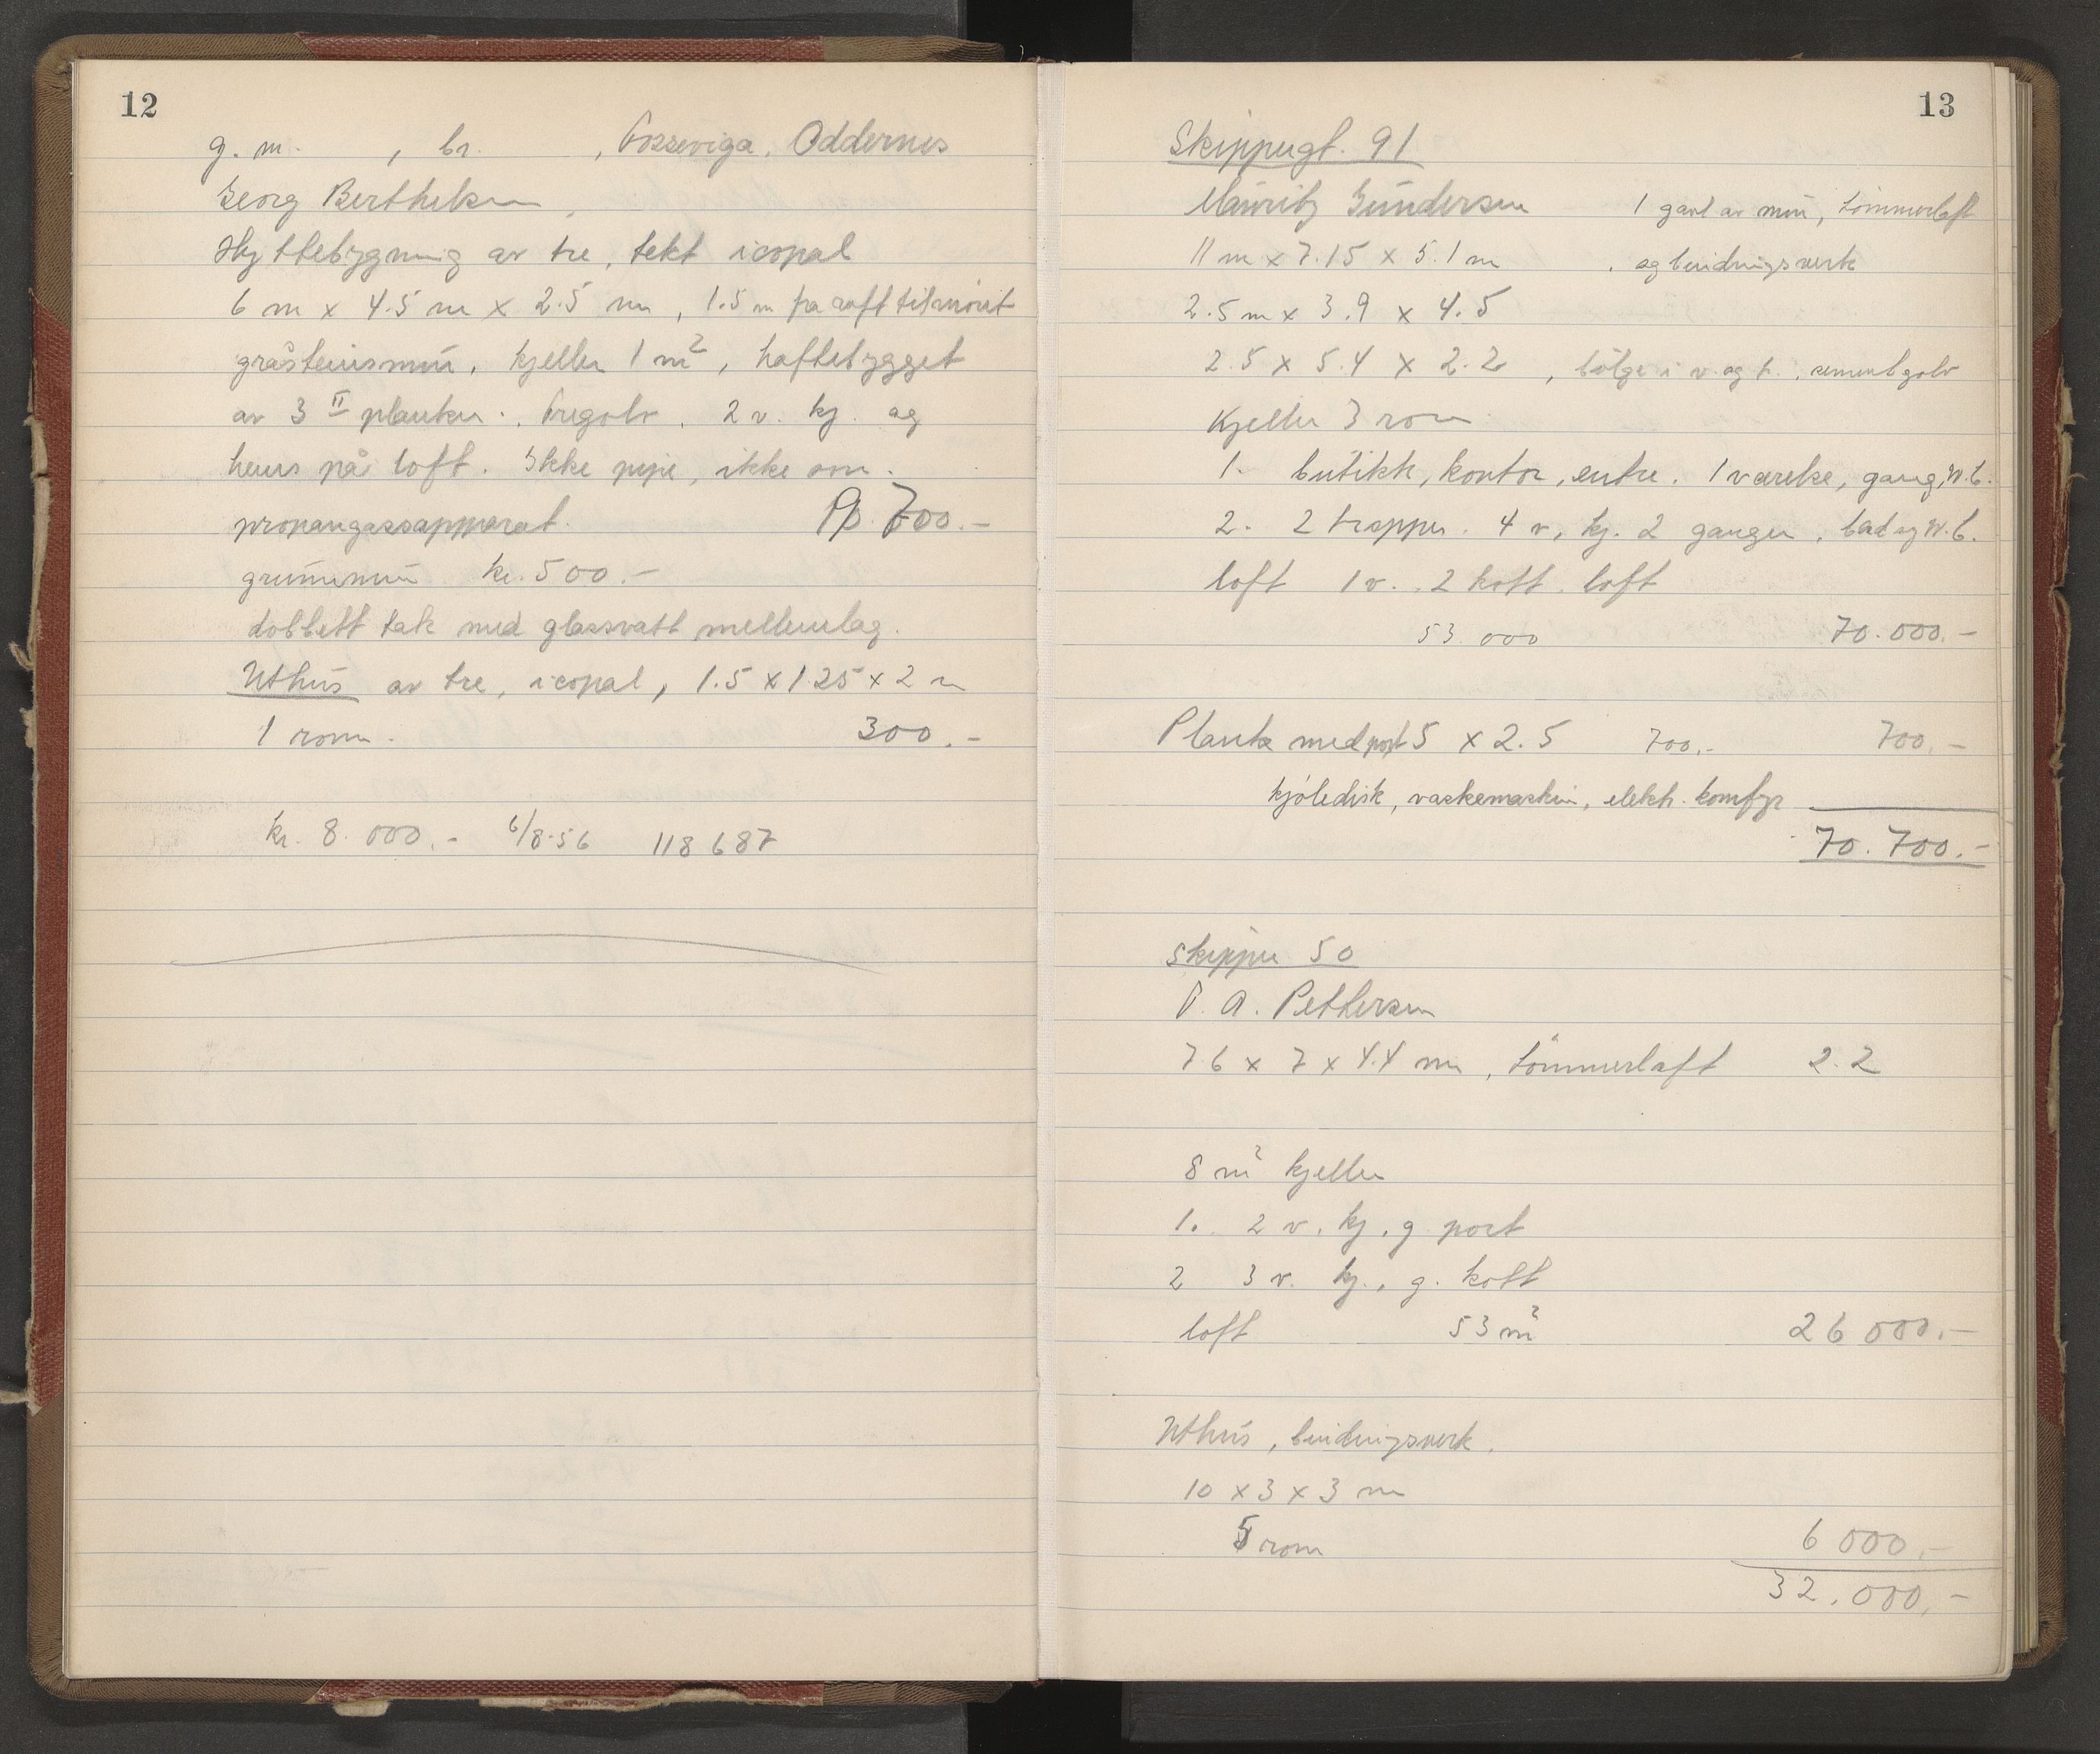 12
g. m. , br. , Fosseviga, Oddernes
Georg Berthelsen,
Hyttebygning av tre, tekt icopal
6 m x 4.5 m x 2.5 m, 1.5 m på
gråsteinsmur, kjeller 1 m², haftebygget
av 3 II planker. Tregolv. 2 v. kj. og
hems på loft. Ikke pipe, ikke ovn.
propangassapparat. 700.-
grunnmur kr. 500.-
dobbelt tak med glassvatt mellemlag.
Uthus av tre, icopal, 1.5 x 1.25 x 2 m
1 rom. 300.-
kr. 8.000.- 6/8-56 118687
13
Skippergt. 91
Mauritz Gundersen 1 gavl av mur, tømmerlaft
11 m x 7.15 x 5.1 m . og bindingsverk
2.5 m x 3.9 x 4.5
2.5 x 5.4 x 2.2 , bølge i v. og t. , sementgolv
Kjeller 3 rom
1. butikk, kontor, entre. 1 værelse, gang, W.C.
2. 2 trapper. 4 v, kj. 2 ganger, bad og W.C.
loft 1 v. 2 kott. loft
53 000 70.000.-
Planke med port 5 x 2.5 700.- 700.-
kjøledisk, vaskemaskin, elektr. komfyr
70.700.-
Skipper 50
T. A. Pettersen
7.6 x 7 x 4.4 m, tømmerlaft 2.2
8 m² kjeller
1. 2 v. kj, g. port
2 3 v. kj., g. kott
loft 53 m² 26 000.-
Uthus, bindingsverk.
10 x 3 x 3 m
5 rom 6 000.-
32.000.-